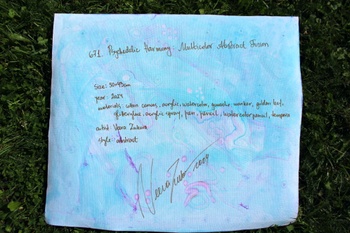 671 Psychedelic Harmony: Multicolor Abstract Dream
Size: 50×45cm
year: 2024
materials: cotton canvas, acrylic, watercolor, gouache, marker, golden leaf,
fiberglue, acrylic spray, pen, pencil, watercolor pencil, tempera
artist Vera
style: abstract
Vera